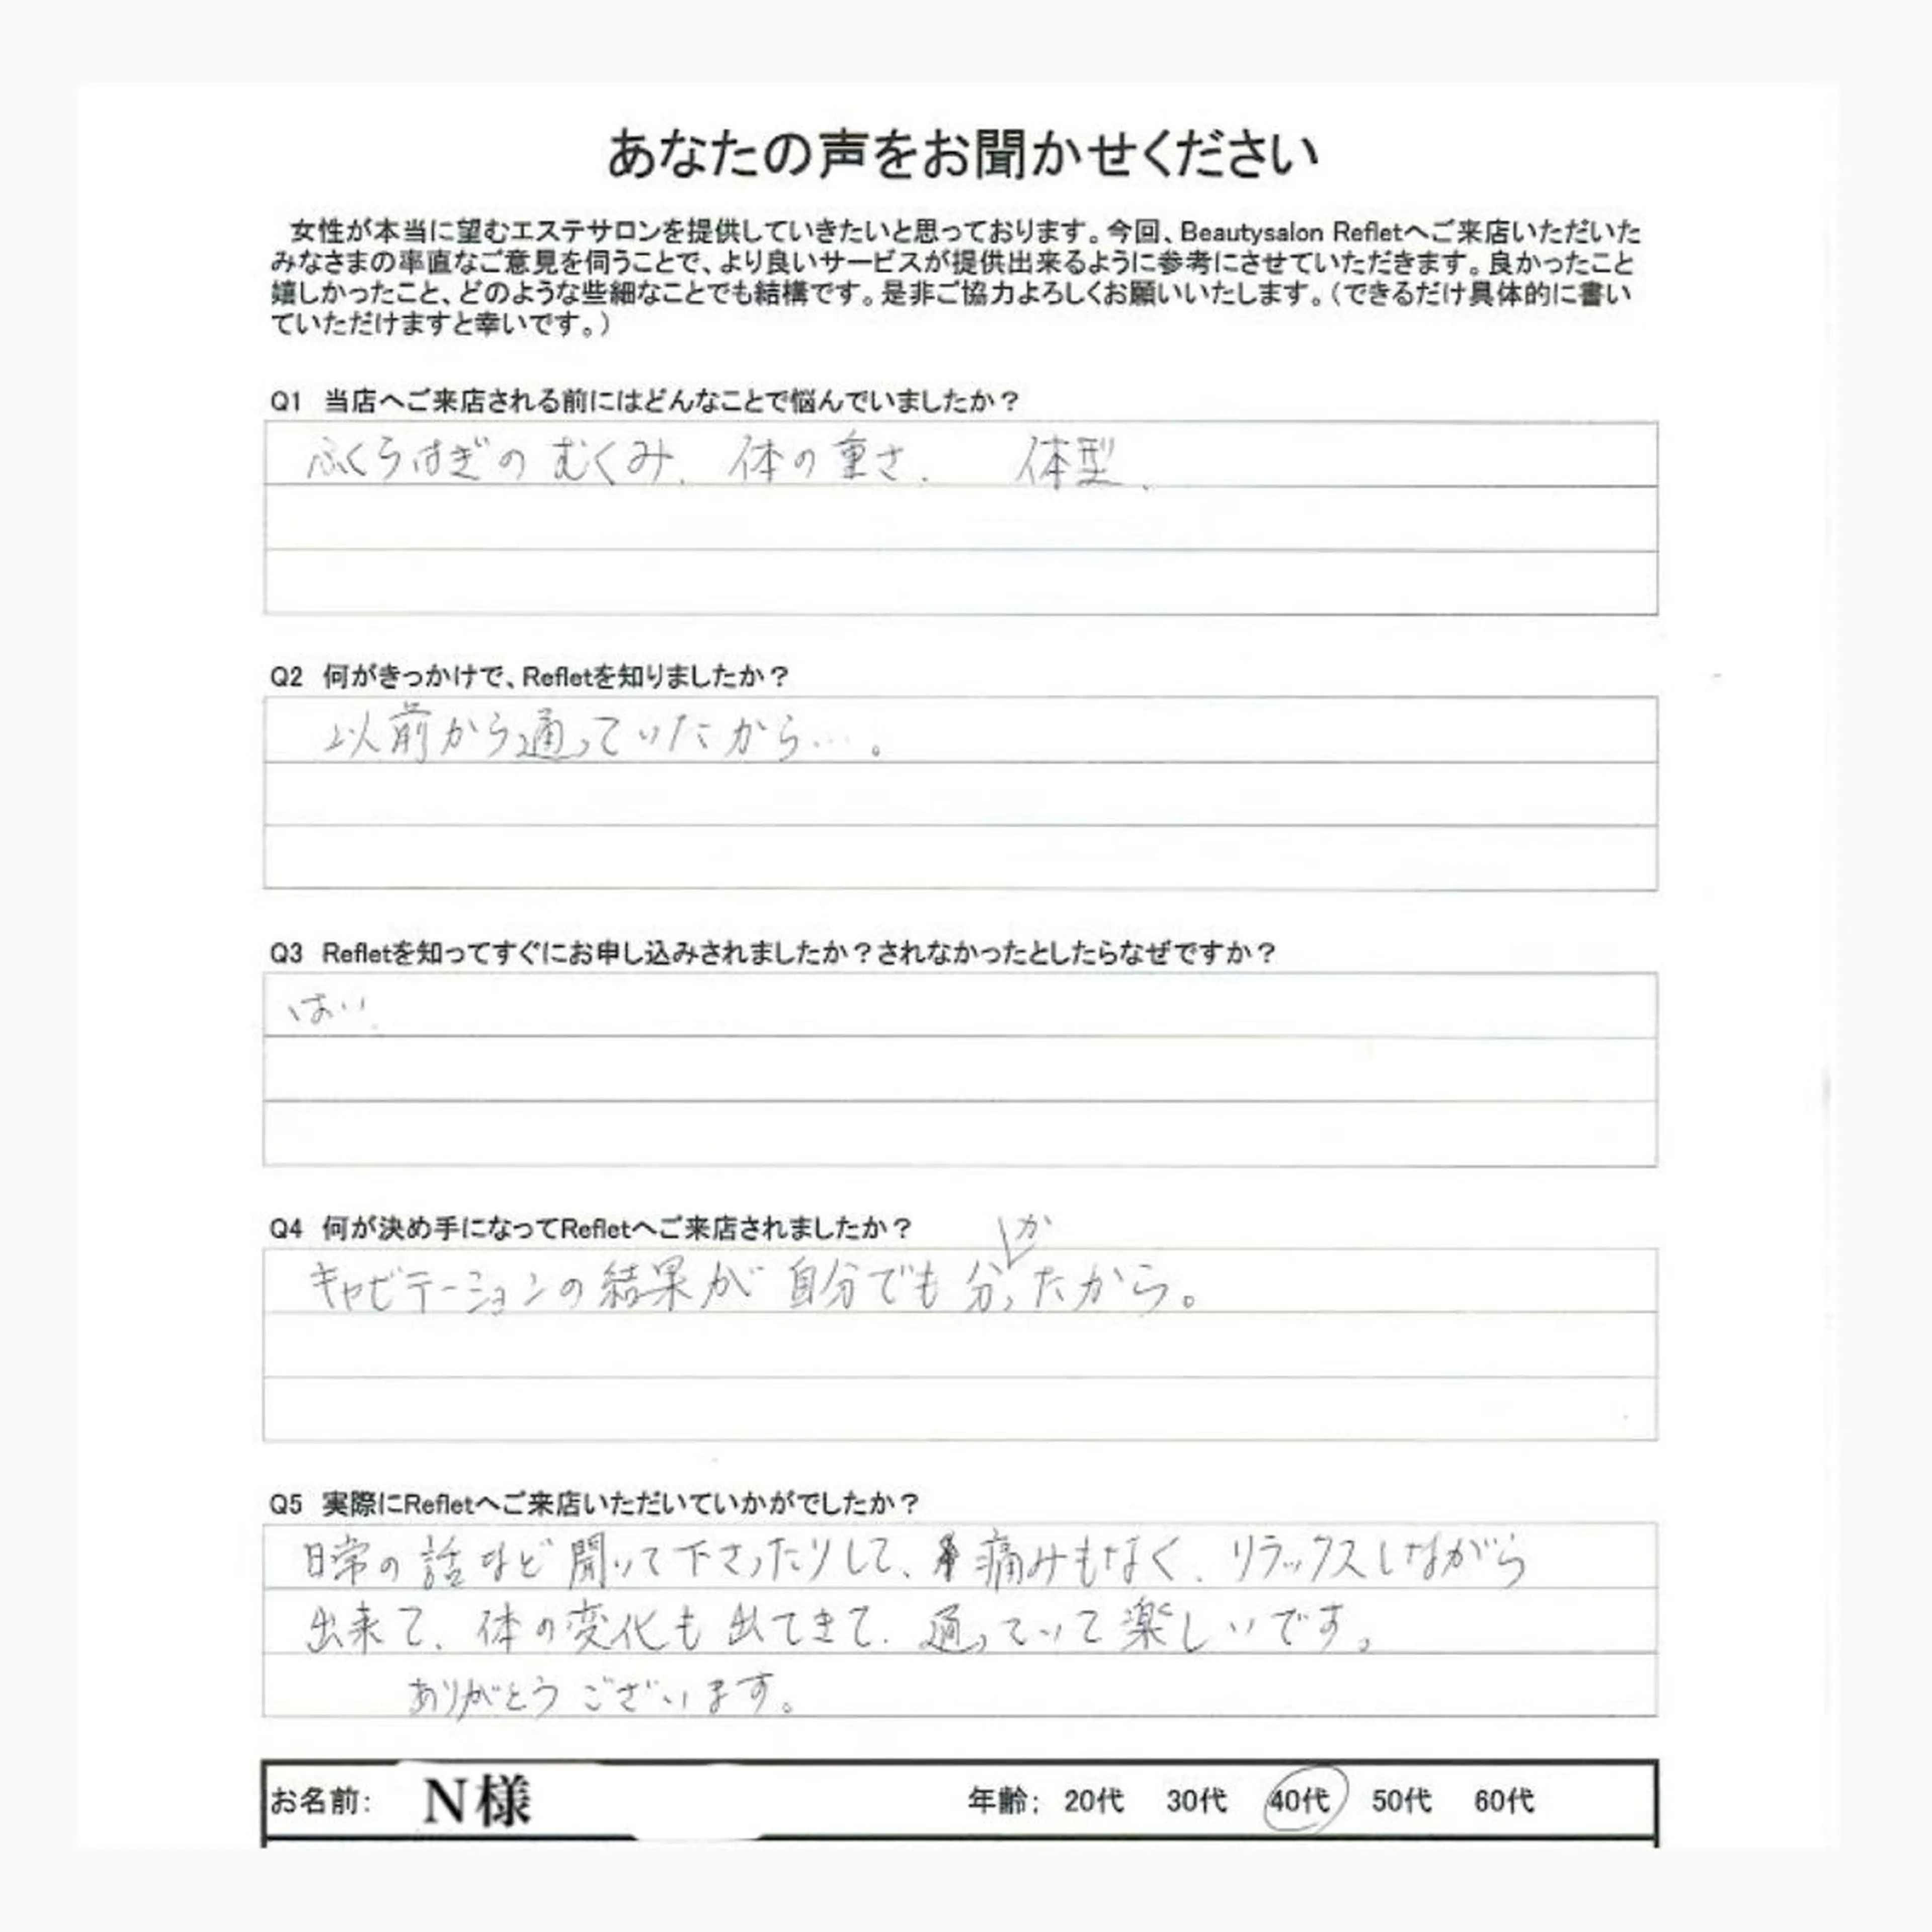 あなたの声をお聞かせください
女性が本当に望むエステサロンを提供していきたいと思っております。今回、Beautysalon Refletへご来店いただいた
みなさまの率直なご意見を伺うことで、より良いサービスが提供出来るように参考にさせていただきます。良かったこと
嬉しかったこと、どのような些細なことでも結構です。是非ご協力よろしくお願いいたします。（できるだけ具体的に書い
ていただけますと幸いです。）
Q1 当店へご来店される前にはどんなことで悩んでいましたか？
ふくらはぎの むくみ、体の重さ、 体型、
Q2 何がきっかけで、Refletを知りましたか？
以前から通っていたから…。
Q3 Refletを知ってすぐにお申し込みされましたか？されなかったとしたらなぜですか？
はい。
Q4 何が決め手になってRefletへご来店されましたか？
キャビテーションの結果が 自分でも 分かったから。
Q5 実際にRefletへご来店いただいていかがでしたか？
日常の話など聞いて下さったりして、痛みもなく、リラックスしながら
出来て、体の変化も出てきて、通っていて楽しいです。
ありがとうございます。
お名前： N様 年齢； 20代 30代 40代 50代 60代